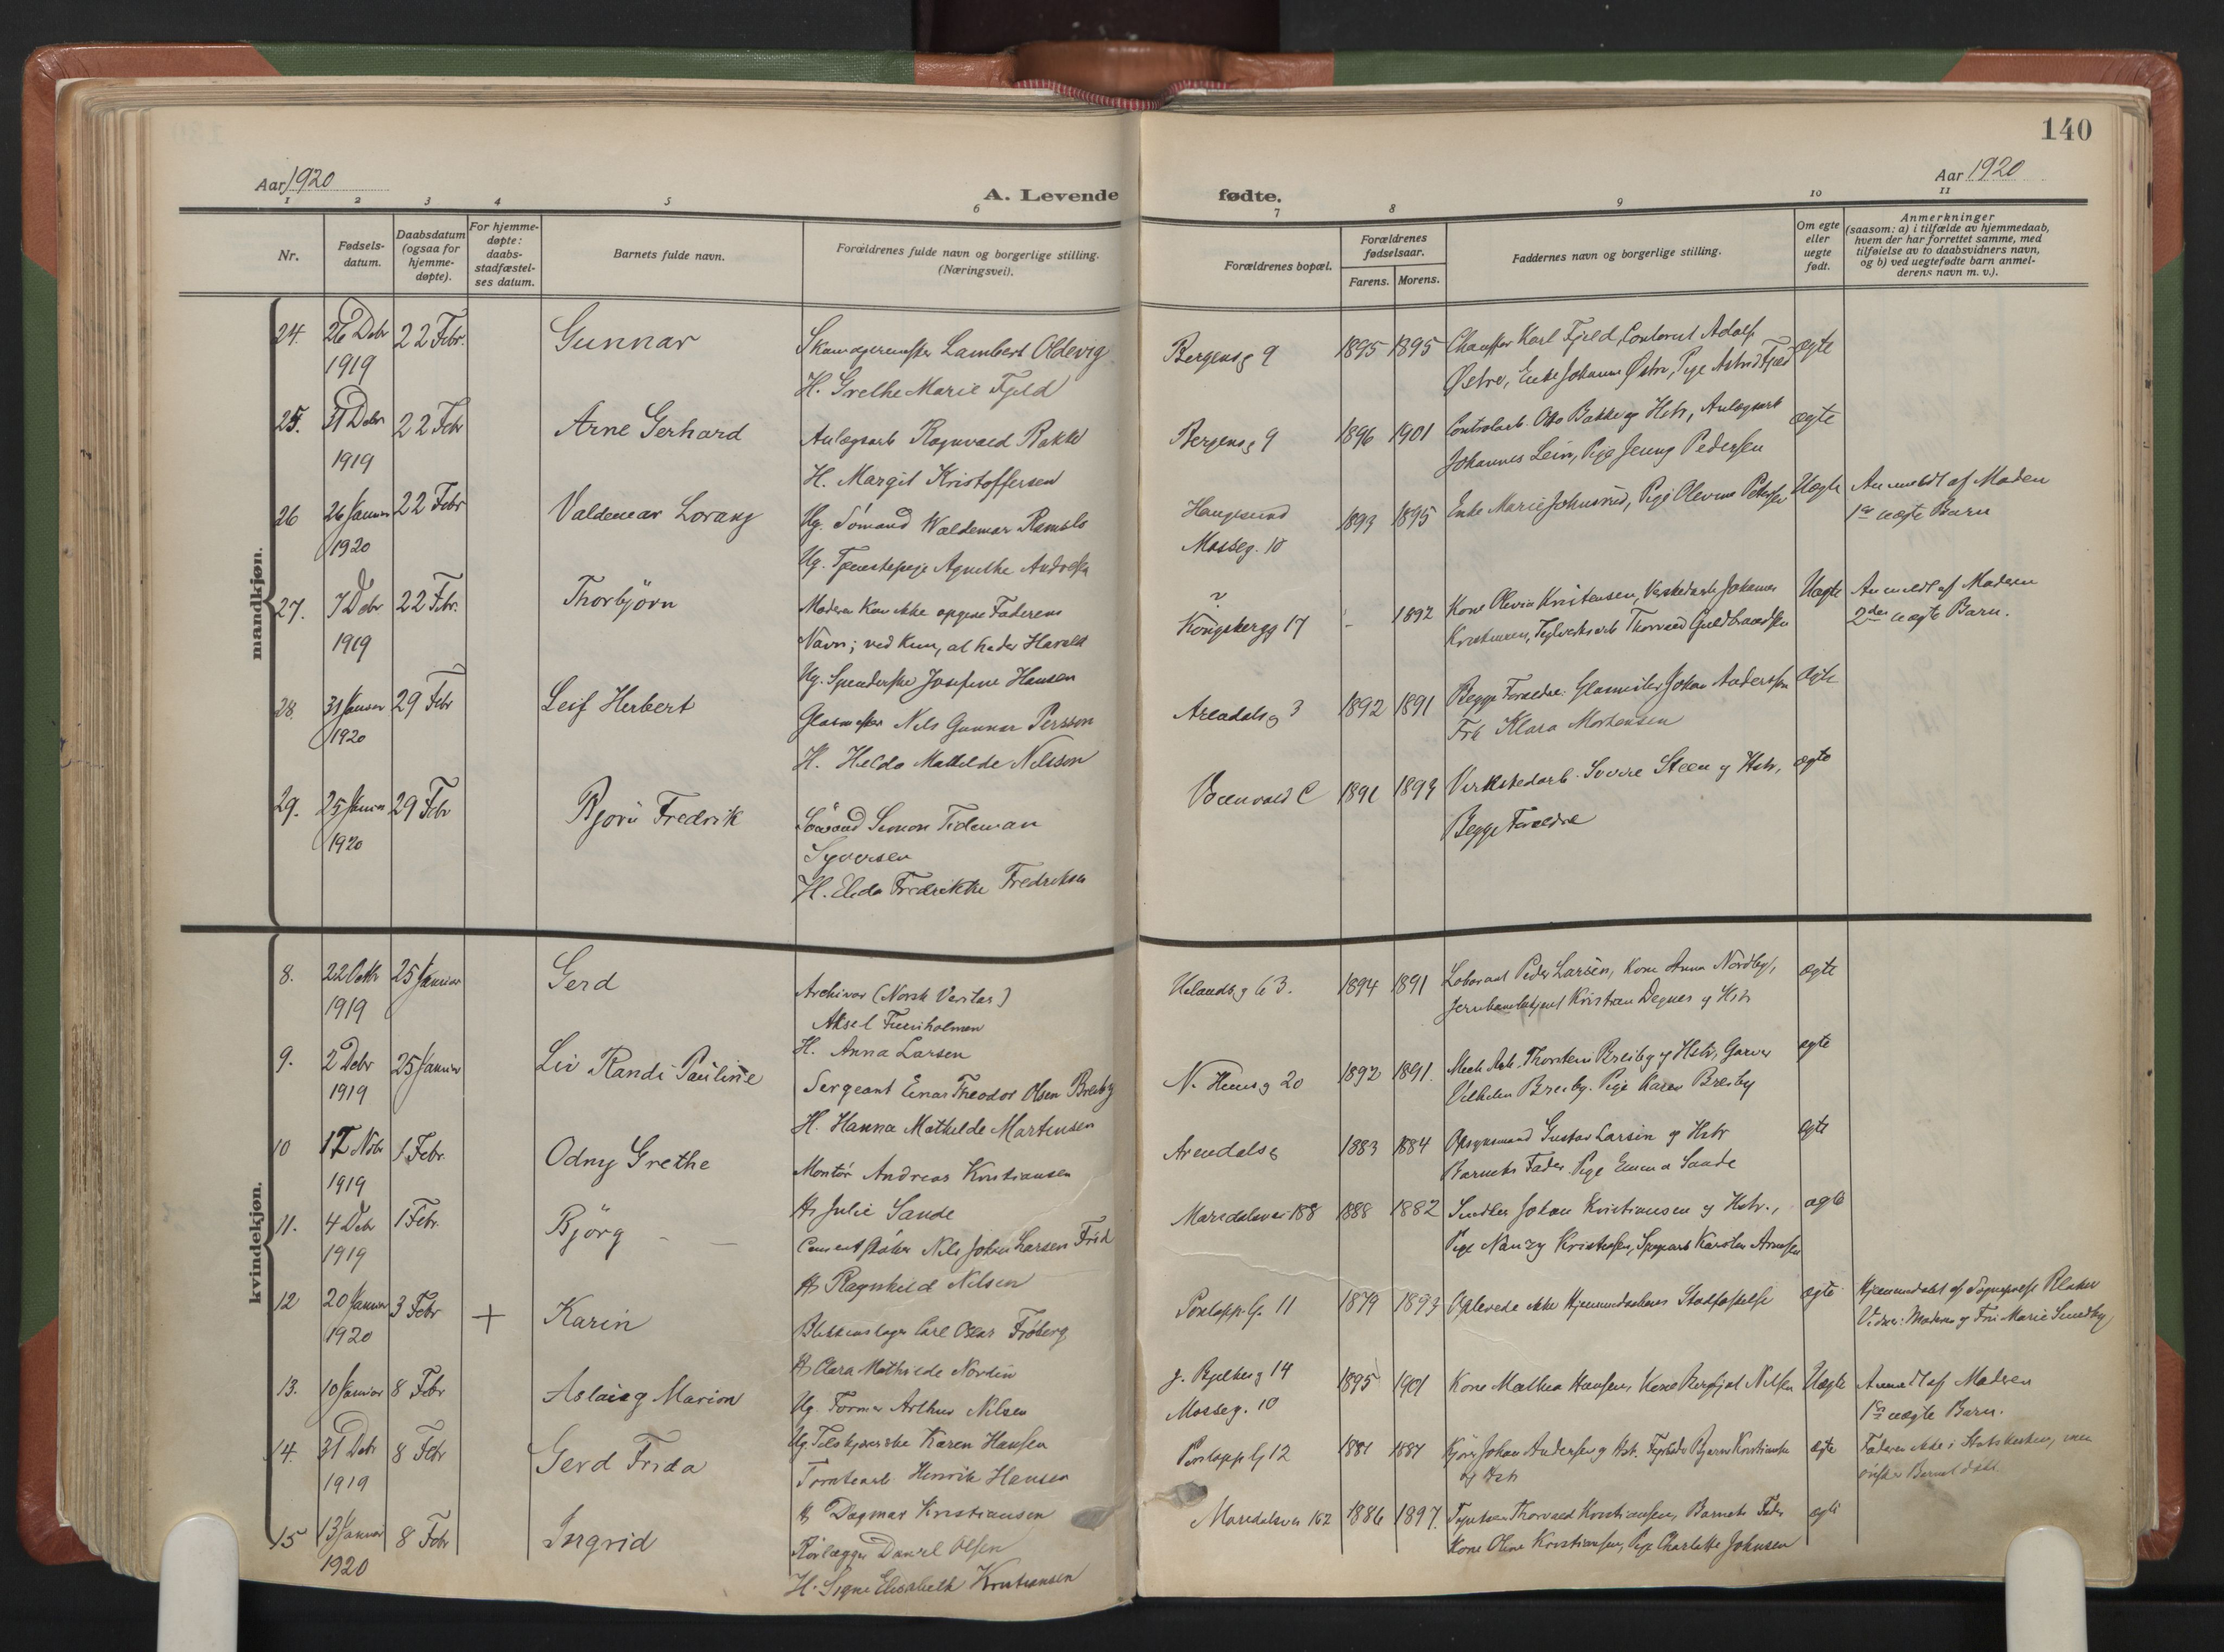 140
Aar 1920
A. Levende fødte.
Aar 1920
1 2 3 4 5 6 7 8 9 10 11
Nr.
Fødsels-
datum.
Daabsdatum
(ogsaa for
hjemme-
døpte).
For hjemme-
døpte:
daabs-
stadfæstel-
ses datum.
Barnets fulde navn.
Forældrenes fulde navn og borgerlige stilling.
(Næringsvei).
Forældrenes bopæl.
Forældrenes
fødselsaar.
Farens. Morens.
Faddernes navn og borgerlige stilling.
Om egte
eller
uegte
født.
Anmerkninger
(saasom: a) i tilfælde av hjemmedaab,
hvem der har forrettet samme, med
tilføielse av to daabsvidners navn,
og b) ved uegtefødte barn anmel-
derens navn m. v.).
mandkjøn.
24. 26 Debr 22 Febr. Gunnar Lambert Oldevig Bergensg 9 1895 1895 Karl Fjeld, Adolf ægte
1919 H. Grethe Marie Fjeld Østre, Enke Johanne Østre, Pige Astrid Fjeld
25. 31 Debr 22 Febr Arne Gerhard Anlægsarb Ragnvald Bakke Bergensg 9 1896 1901 Otto Bakke og Hstr, Anlægsarb ægte
1919 H. Margit Kristoffersen Johannes Lein, Pige Jenny Pedersen
26 26 Januar 22 Febr Valdemar Lorang Ug. Sömand Waldemar Haugesund 1893 1895 Enke Marie Johnsrud, Pige Olevine Uægte Anmeldt af Moderen
1920 Ug. Tjenestepige Agnethe Mosseg. 10 1ste uægte Barn
27. 7 Debr 22 Febr. Thorbjörn Moderen kan ikke opgive Faderens ? - 1892 Kone Olevia Kristensen, Johannes Uægte Anmeldt af Moderen
1919 Navn; ved kun, at heder Harald Kongsbergg 17 Thorvald Guldbrandsen 2det uægte Barn.
Ug. Spinderske Josefine Hansen
28. 31 Januar 29 Febr Leif Herbert Glasmester Nils Gunnar Persson Arendalsg 3 1892 1891 Begge Forældre. Glasmester Johan Andersson ægte
1920 H. Helda Mathilde Nilsson Frk Klara Mortensen
29. 25 Januar 29 Febr Bjørn Fredrik Sömand Simon Tideman 1891 1893 Verkstedarb. Sverre Steen og Hstr, ægte
1920 Syversen Begge Forældre
H. Elida Fredrikke Fredriksen
kvindekjøn.
8. 22 Octbr 25 Januar Gerd Archivar (Norsk Veritas) Uelandsg 63. 1894 1891 Peder Larsen, Kone Anna Nordby, ægte
1919 Aksel Kristian Degnes og Hstr
H. Anna Larsen
9. 2 Debr 25 Januar Liv Randi Pauline Sergeant Einar Theodor Olsen Breiby 20 1892 1891. Mek Arb. Thorstein Breiby og Hstr, Garver ægte
1919 H. Hanna Mathilde Martinsen Vilhelm Breiby. Pige Karen Breiby
10 17 Nobr 1 Febr. Odny Grethe Montör Andreas Kristiansen Arendalsg 1883 1884 Opsynsmand Gustav Larsen og Hstr ægte
1919 H. Julie Sande Barnets Fader. Pige Emma Sande
11. 4 Debr 1 Febr. Björg Nils Johan Larsen Maridalsvei 188 1888 1882 Snedker Johan Kristiansen og Hstr., ægte
1919 H. Ragnhild Nilsen Pige Nanzy Kristensen, Karoline
12 20 Januar 3 Febr + Karin Blikkenslager Carl Oscar Fröberg 11 1879 1893 Oplevede ikke Hjemmedaabens Stadfæstelse ægte Hjemmedøbt af Sogneprest
1920 H. Clara Mathilde Nordin Vidner: Moderen og Fru Marie Smedby
13. 10 Januar 8 Febr Aslaug Marion Ug. Former Arthur Nilsen g. 14 1895 1901 Kone Mathea Hansen, Kone Nilsen Uægte Anmeldt af Moderen
Ug. Karen Hansen Mosseg. 10 1ste uægte Barn.
14. 31 Debr 8 Febr Gerd Frida Tomtearb Henrik Hansen 12 1881 1881 Johan Andersen og Hstr. Bjarne Kristiansen ægte Faderen ikke i Statskirken, men
1919 H. Dagmar Kristiansen og Hstr ønsker Barnet døbt
15 13 Januar 8 Febr Ingrid Rørlægger Daniel Olsen Maridalsvei 162 1886 1897. Thorvald Kristiansen, Barnets Fader ægte
1920 H. Signe Elisabeth Kristiansen Kone Oline Kristiansen, Pige Charlotte Johnsen